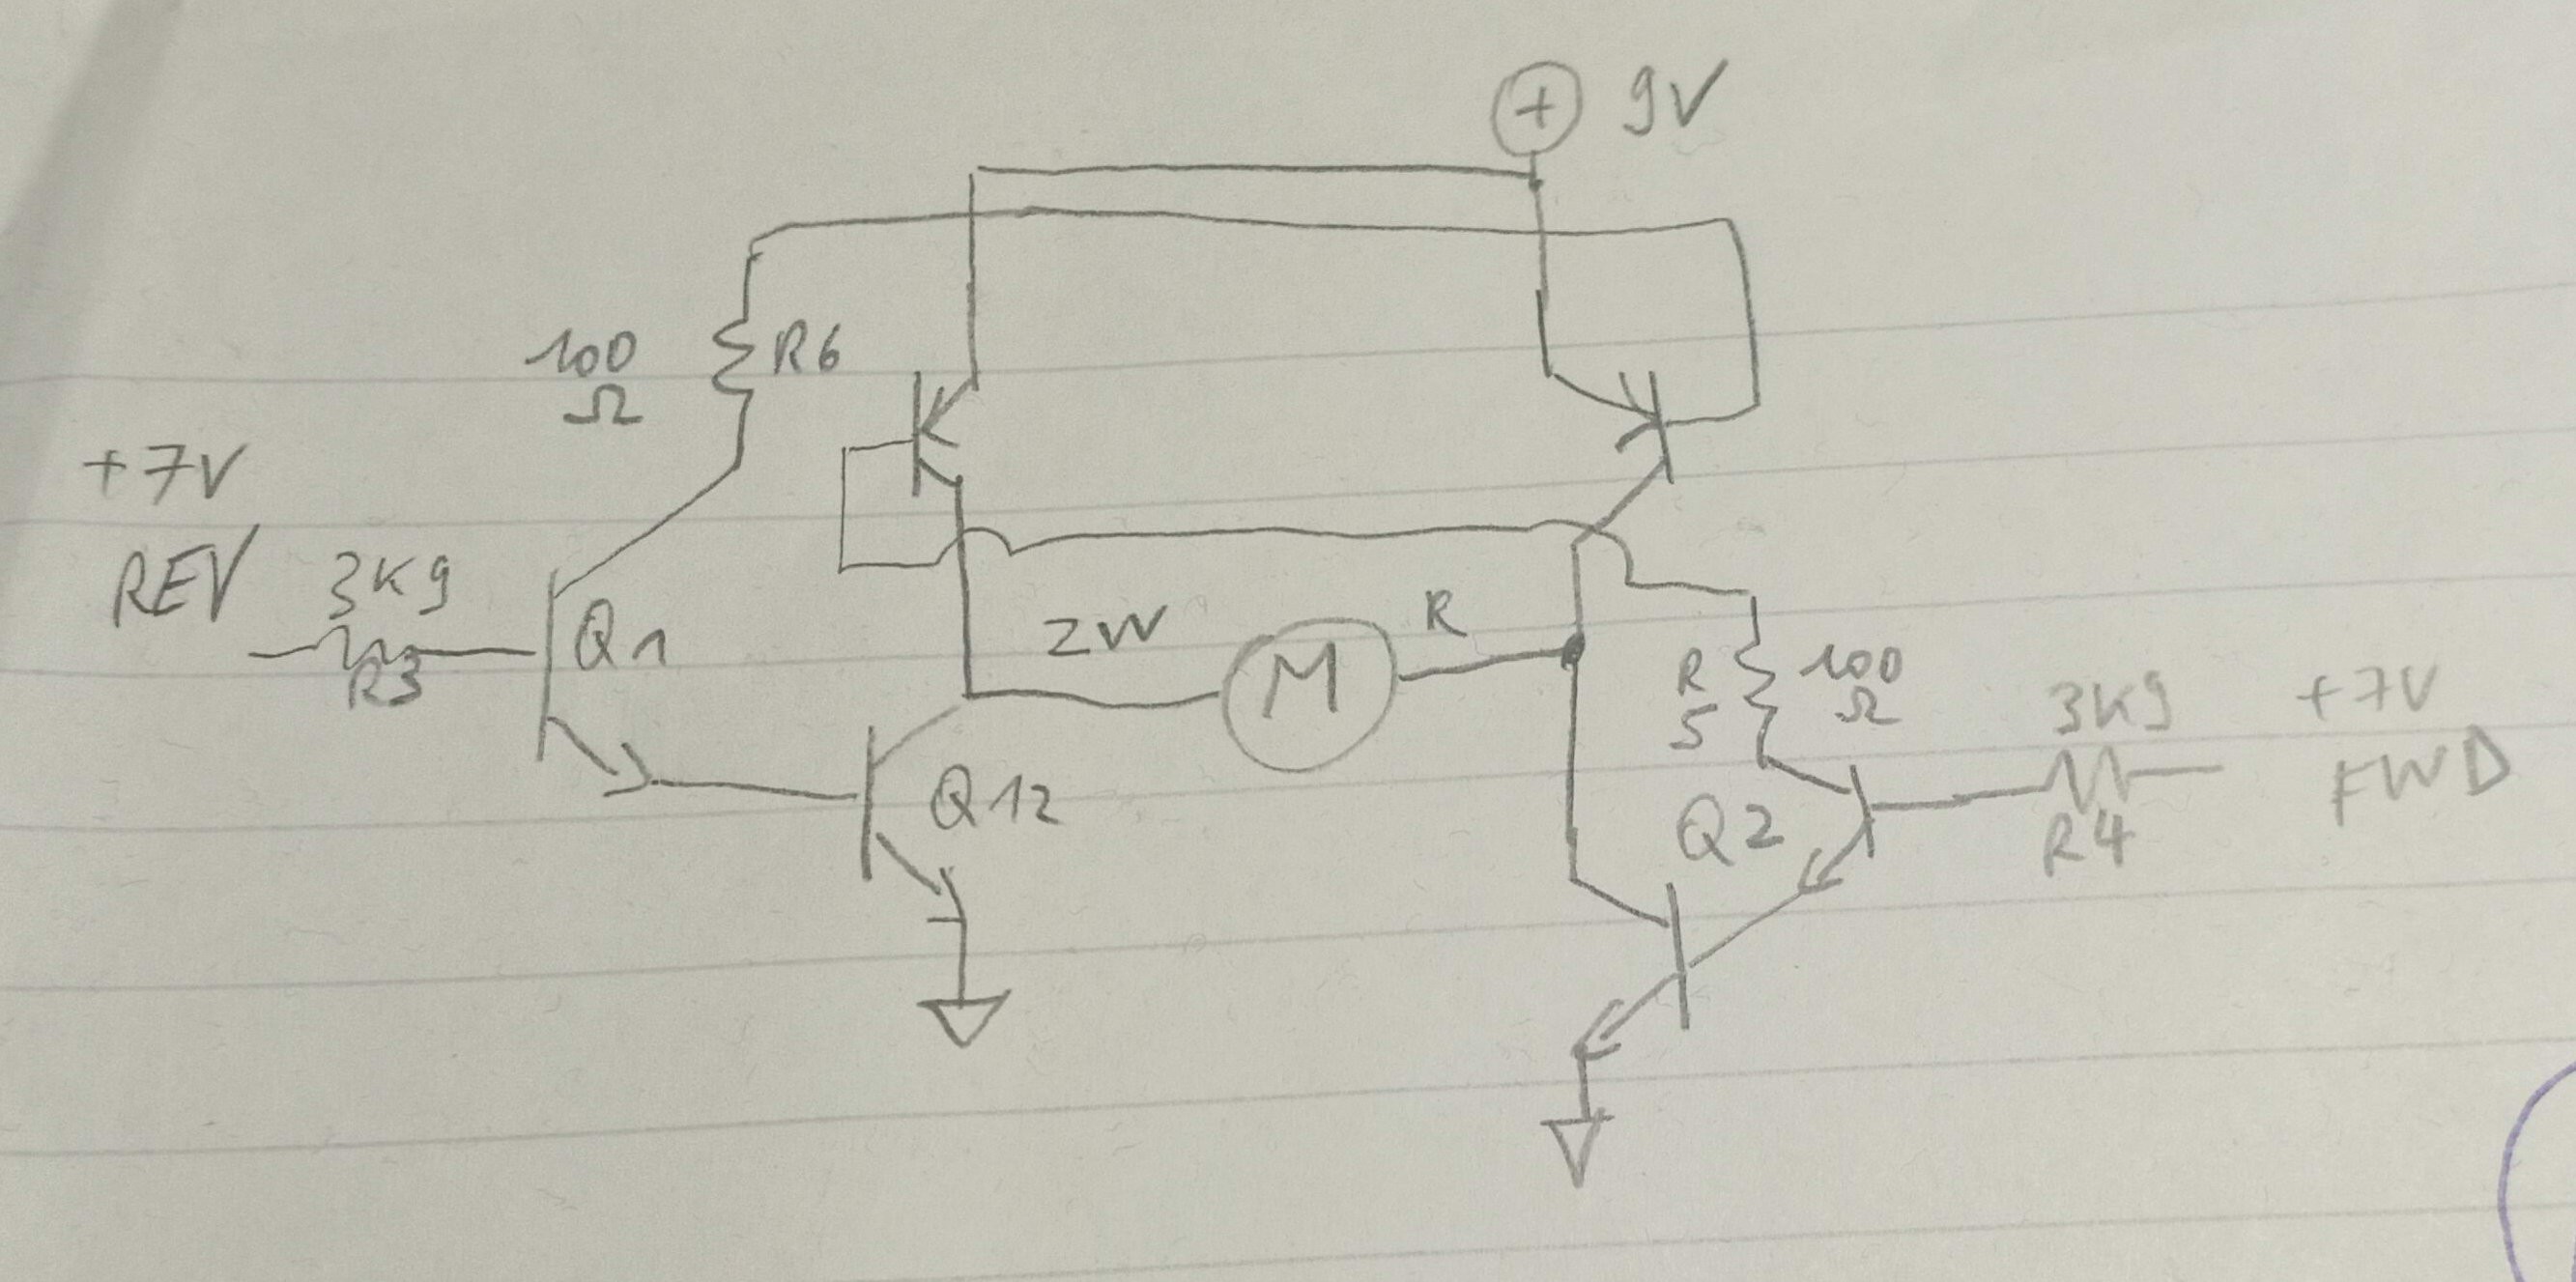 + 9V
100
Ω
R6
+7V
REV
3K9
R3
Q1
ZW
R
M
R
5
100
Ω
3K9
+7V
FWD
R4
Q12
Q2